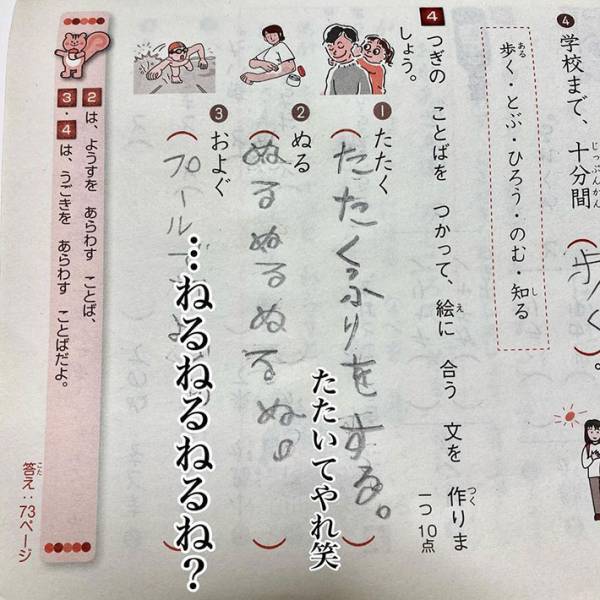 ❹学校まで、十分間
じっぷんかん
(歩く)。
歩く・とぶ・ひろう・のむ・知る
ある
し
4 つぎの ことばを つかって、絵に 合う 文を 作りま
え
あ
つく
しょう。
一つ10点
❶たたく
(たたくふりをする。)
たたいてやれ笑
❷ぬる
(ぬるぬるぬるぬ。)
❸およぐ
(プールで
…ねるねるねるね?
2は、ようすを あらわす ことば、
3・4は、うごきを あらわす ことばだよ。
答え:73ページ
こた